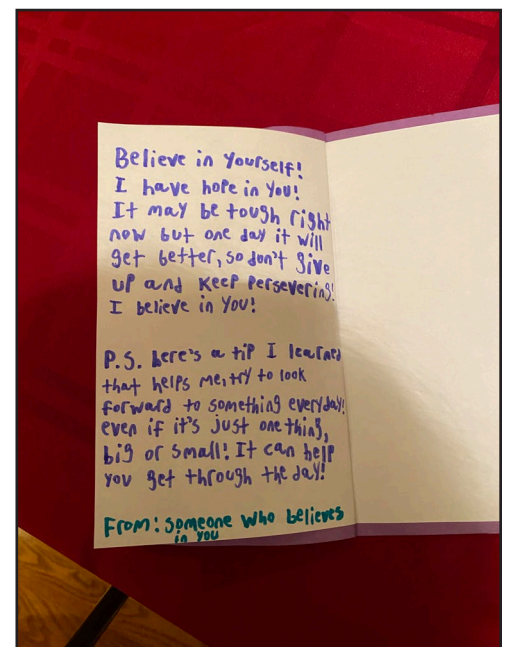 Believe in Yourself!
I have hope in You!
It may be tough right
now but one day it will
get better, so don't give
up and keep persevering!
I believe in You!
P.S. here's a tip I learned
that helps me, try to look
forward to something everyday!
even if it's just one thing,
big or small! It can help
you get through the day!
From: someone who believes
in you